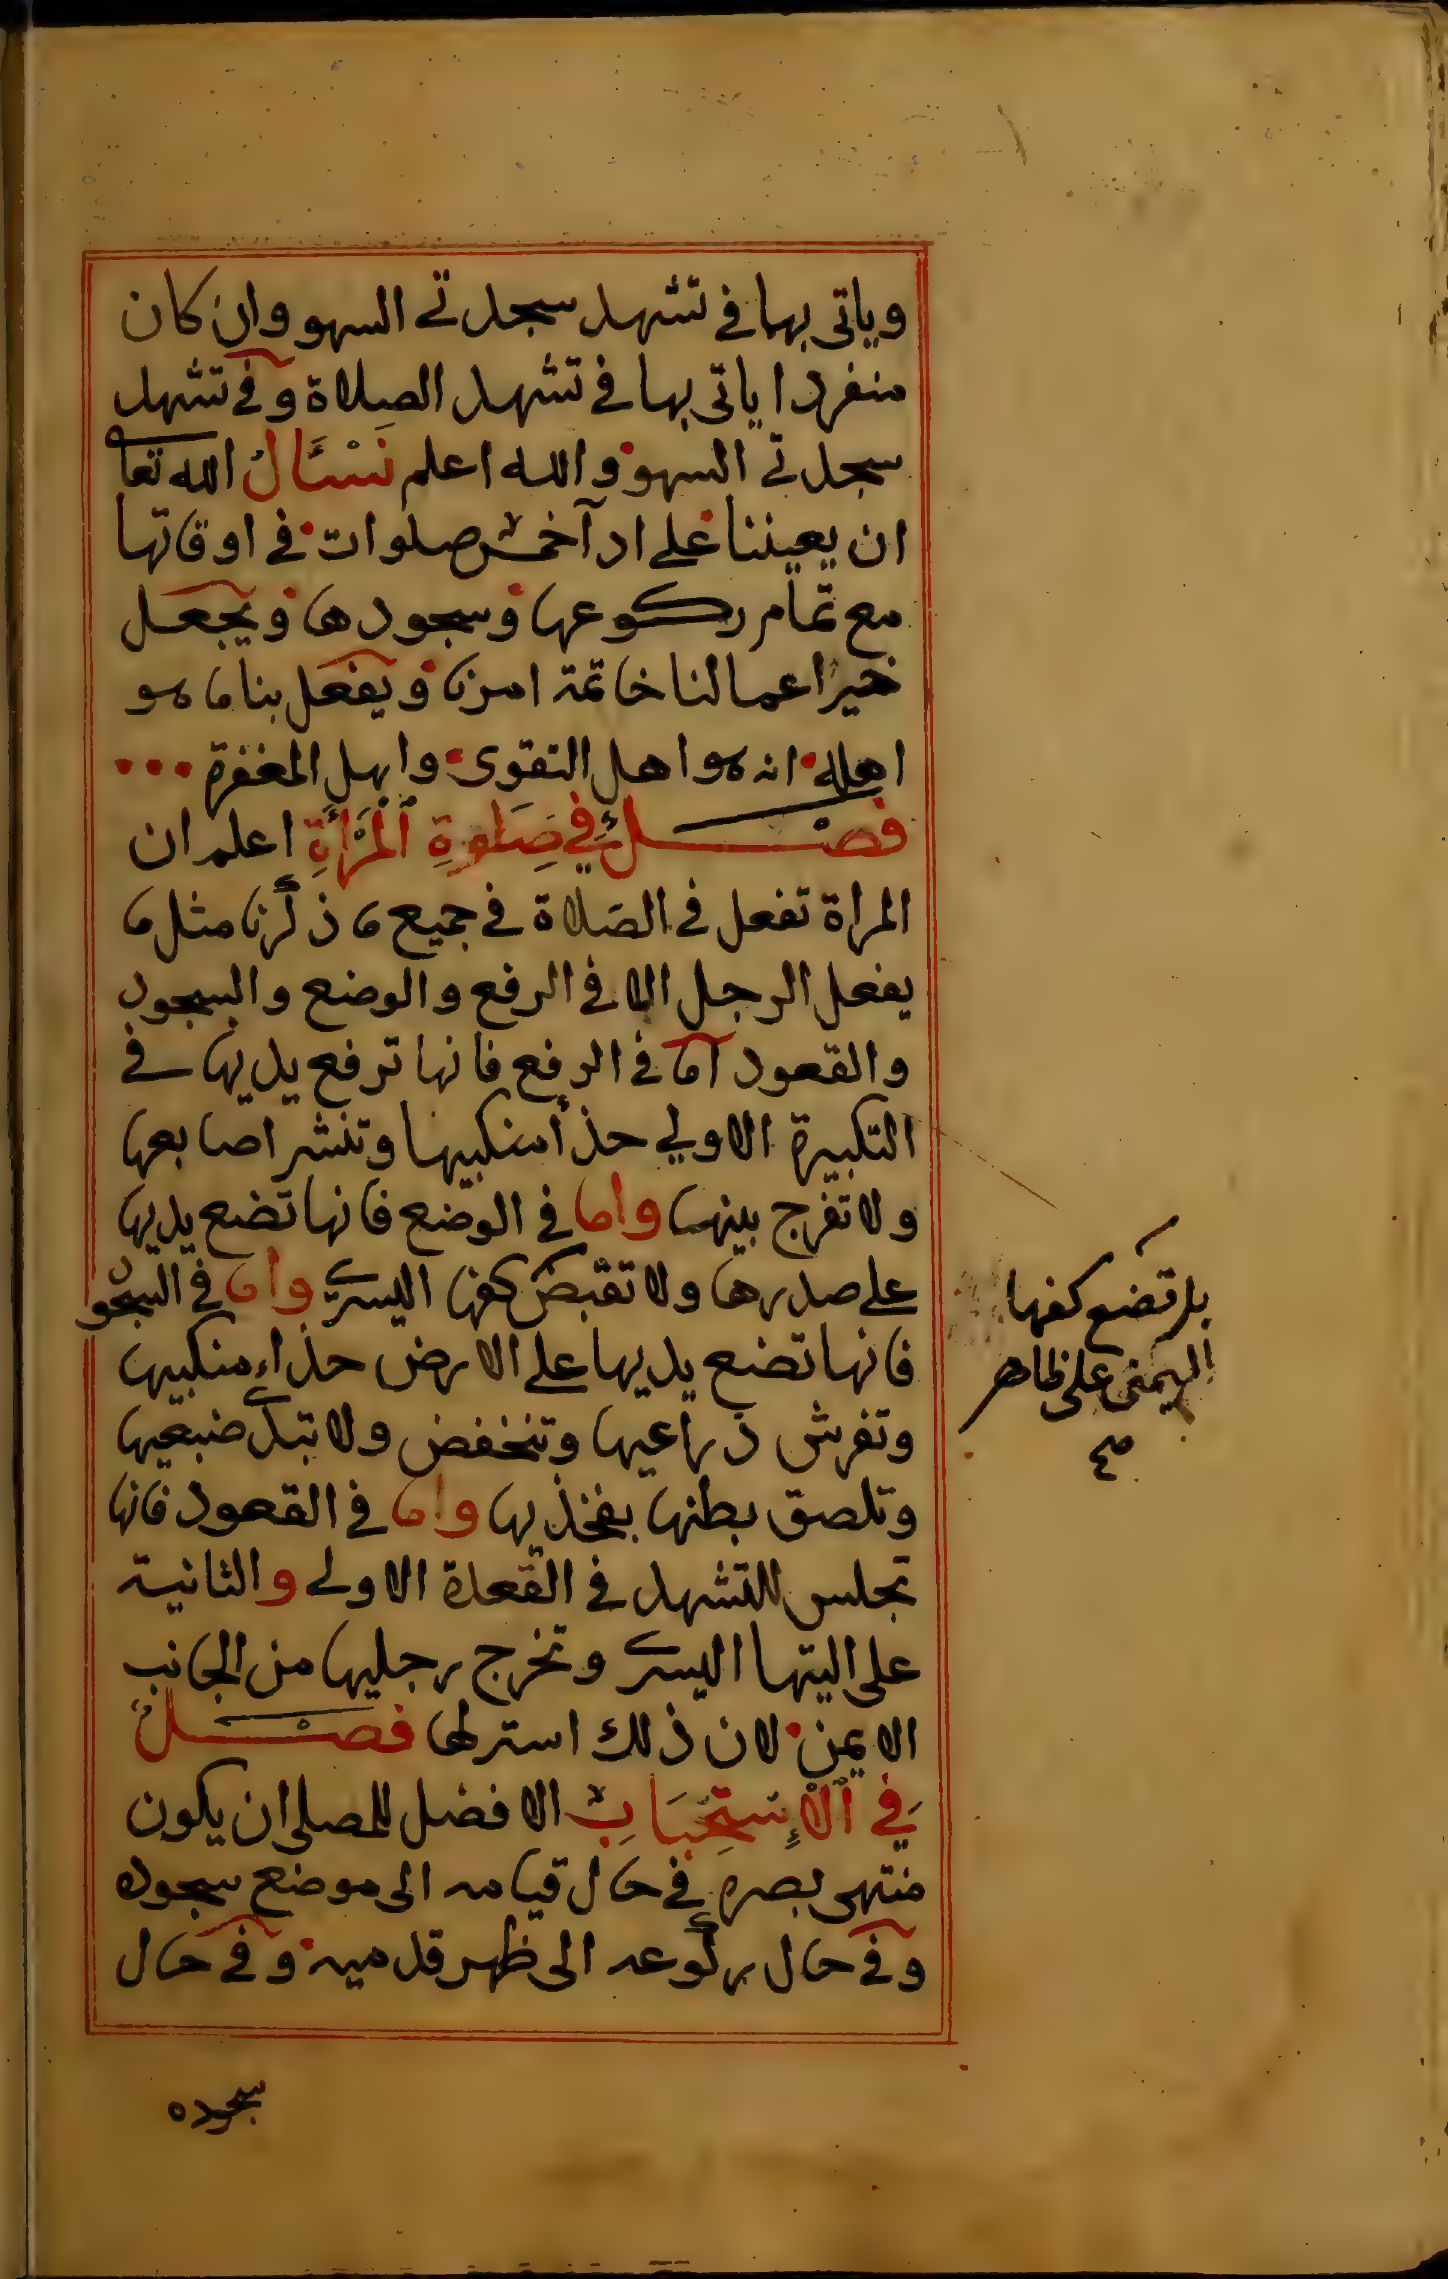 وياتى بها فے تشهد سجدتے السهو وان كان
منفردا ياتى بها فے تشهد الصلاة وفے تشهد
سجدتے السهو والله اعلم نَسْئَالُ الله تعا
ان يعيننا علے ادآ خمس صلوات فے اوقاتها
مع تمام ركوعها وسجودها ويجعل
خير اعمالنا خاتمة امرنا ويفعل بنا ما هو
اهله انه هو اهل التقوى واهل المغفرة
فصْلٌ فِي صَلوةِ الْمَرْأَةِ اعلم ان
المراة تفعل فے الصَلاة فے جميع ما ذكرنا مثل ما
يفعل الرجل الا فے الرفع والوضع والسجود
والقعود اما فے الرفع فانها ترفع يديها فے
التكبيرة الاولي حذأ منكبيها وتنشر اصابعها
ولا تفرج بينهما واما فے الوضع فانها تضع يديها
علے صدرها ولا تقبض كفها اليسرے واما فے السجود
فانها تضع يديها علے الارض حذاء منكبيها
وتفرش ذراعيها وتنخفض ولا تبدے ضبعيها
وتلصق بطنها بفخذيها واما فے القعود فانها
تجلس للتشهد فے القعدة الاولے والثانية
على اليتها اليسرے وتخرج رجليها من الجانب
الايمن لان ذلك استر لها فصْلٌ
فِي الْاِسْتِحْبَابِ الافضل للمصلى ان يكون
منتهى بصره فے حال قيامه الى موضع سجوده
وفے حال ركوعه الى ظهر قدميه وفے حال
بل تضع كفها
اليمنى على ظاهر
صح
سجوده